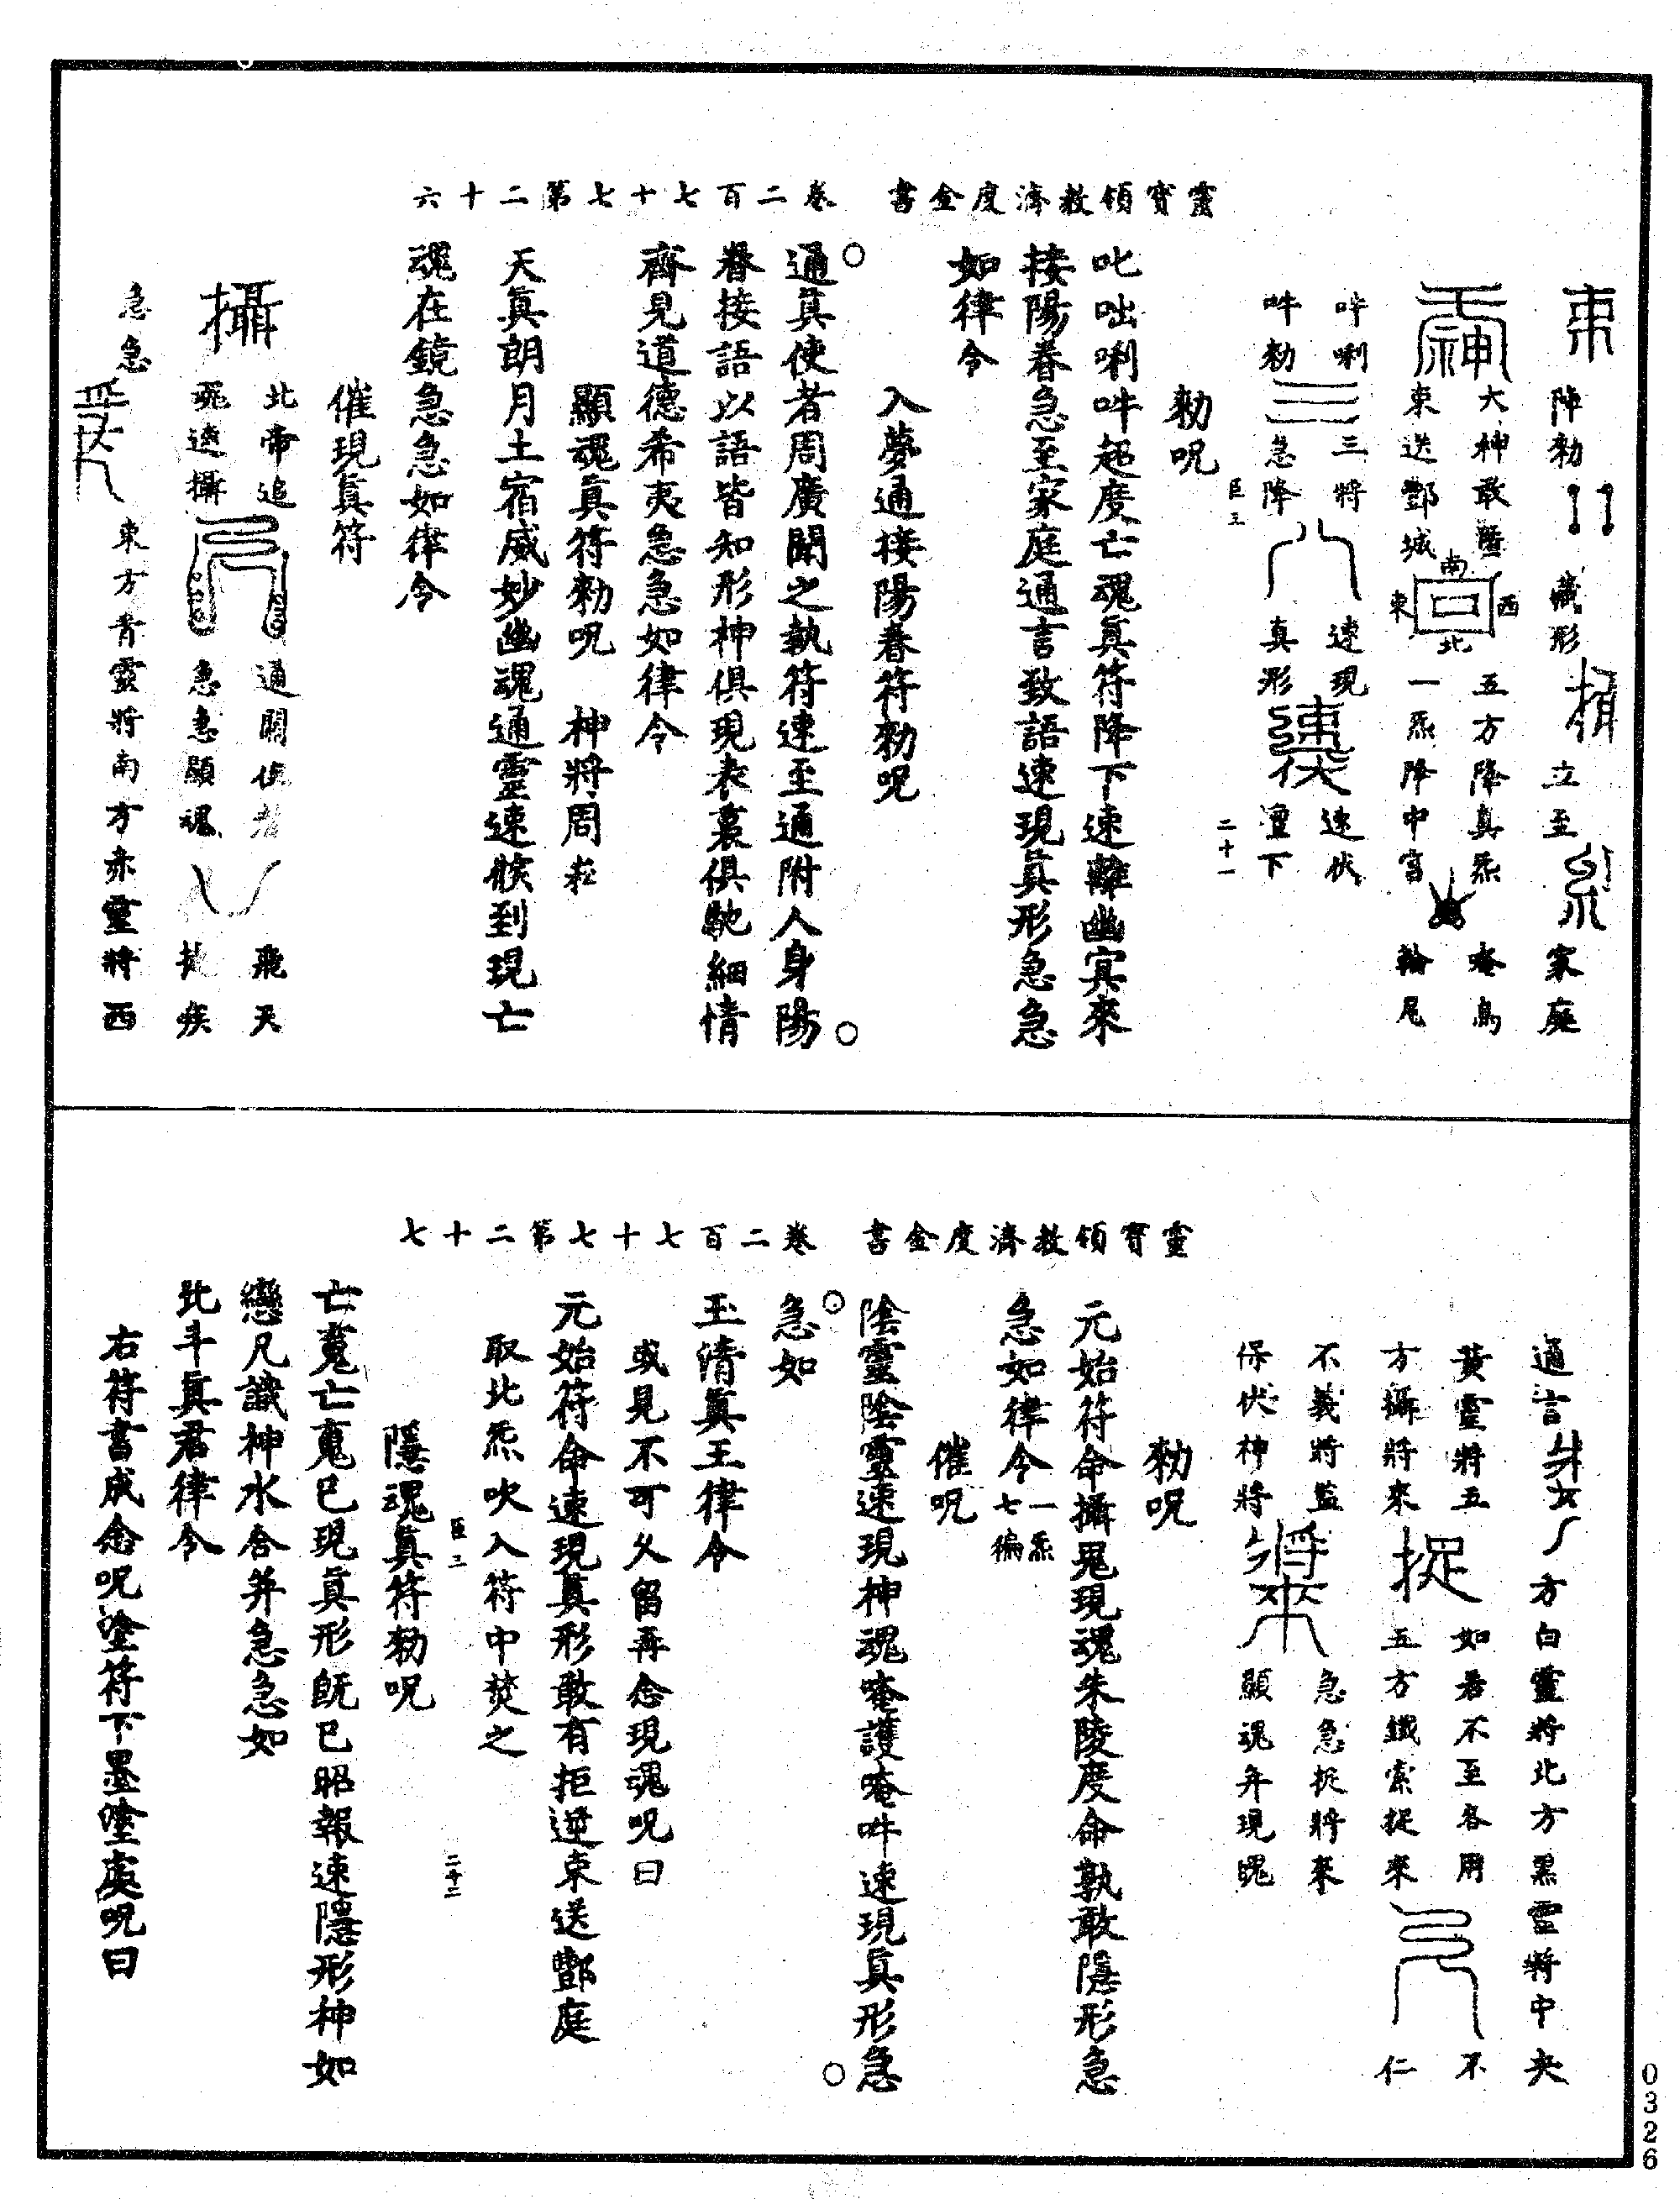 靈寶領教濟度金書　卷二百七十七第二十六
束　陣勑　藏形　立至　家庭
神　大神敢隱　五方降真炁　唵烏
束送酆城　南　西　東　北　一炁降中宮　輪尾
吽唎　三將　速現　速伏
吽勑　急降　真形　速　壇下
臣三　二十一
勑呪
叱咄唎吽超度亡魂真符降下速離幽冥來
接陽眷急至家庭通言致語速現真形急急
如律令
入夢通接陽眷符勑呪
通真使者周廣聞之執符速至通附人身陽
眷接語以語皆知形神俱現表裏俱馳細情
齊見道德希夷急急如律令
顯魂真符勑呪　神將周崧
天真朗月土宿威妙幽魂通靈速候到現亡
魂在鏡急急如律令
催現真符
攝　北帝追　通關使者　飛天
魂速攝　急急顯魂　捷疾
急急　東方青靈將南方赤靈將西
靈寶領教濟度金書　卷二百七十七第二十七
通言　方白靈將北方黑靈將中央
黃靈將五　如若不至各用　不
方攝將來　捉　五方鐵索捉來　仁
不義將監　急急捉將來
保伏神將　將來　顯魂弁現魄
勑呪
元始符命攝鬼現魂朱陵度命孰敢隱形急
急如律令一炁七徧
催呪
陰靈陰靈速現神魂唵護唵吽速現真形急
急如
玉清真王律令
或見不可久留再念現魂呪曰
元始符命速現真形敢有拒逆束送酆庭
取北炁吹入符中焚之
臣三　二十二
隱魂真符勑呪
亡魂亡魂已現真形旣已昭報速隱形神如
戀凡識神水舍并急急如
北斗真君律令
右符書成念呪塗符下墨塗處呪曰
0326